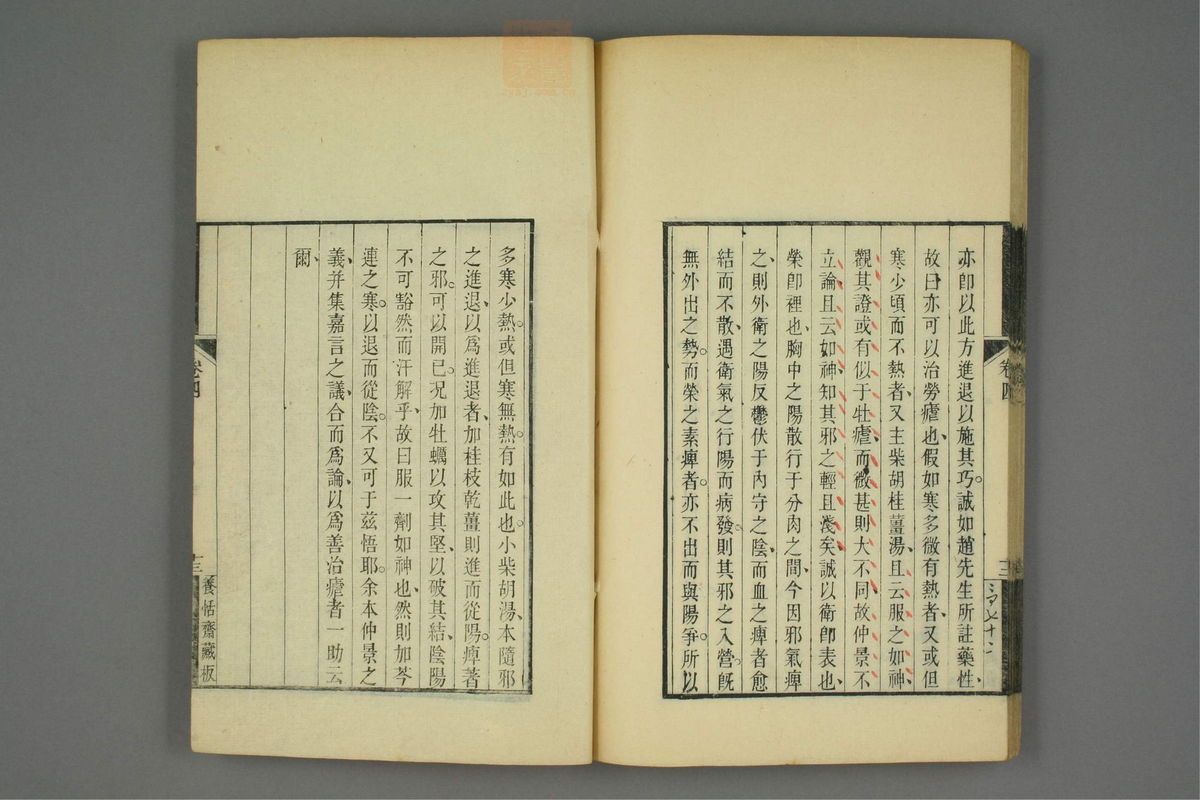 亦卽以此方進退以施其巧。誠如趙先生所註藥性、
故曰亦可以治勞瘧也、假如寒多微有熱者、又或但
寒少頃而不熱者、又主柴胡桂薑湯、且云服之如神、
觀其證或有似于牡瘧、而微甚則大不同故仲景不
立論且云如神知其邪之輕且淺矣誠以衛卽表也、
榮卽裡也、胸中之陽散行于分肉之間、今因邪氣痺
之、則外衛之陽反鬱伏于內守之陰、而血之痺者愈
結而不散、遇衛氣之行陽而病發。則其邪之入營。旣
無外出之勢。而榮之素痺者。亦不出而與陽爭。所以
卷四
十三
多寒少熱。或但寒無熱。有如此也。小柴胡湯、本隨邪
之進退、以爲進退者、加桂枝乾薑則進而從陽。痺著
之邪。可以開已。况加牡蠣以攻其堅、以破其結、陰陽
不可豁然而汗解乎、故曰服一劑如神也、然則加芩
連之寒。以退而從陰。不又可于茲悟耶。余本仲景之
義、并集嘉言之議、合而爲論、以爲善治瘧者一助云
爾、
卷四
十三
養恬齋藏板